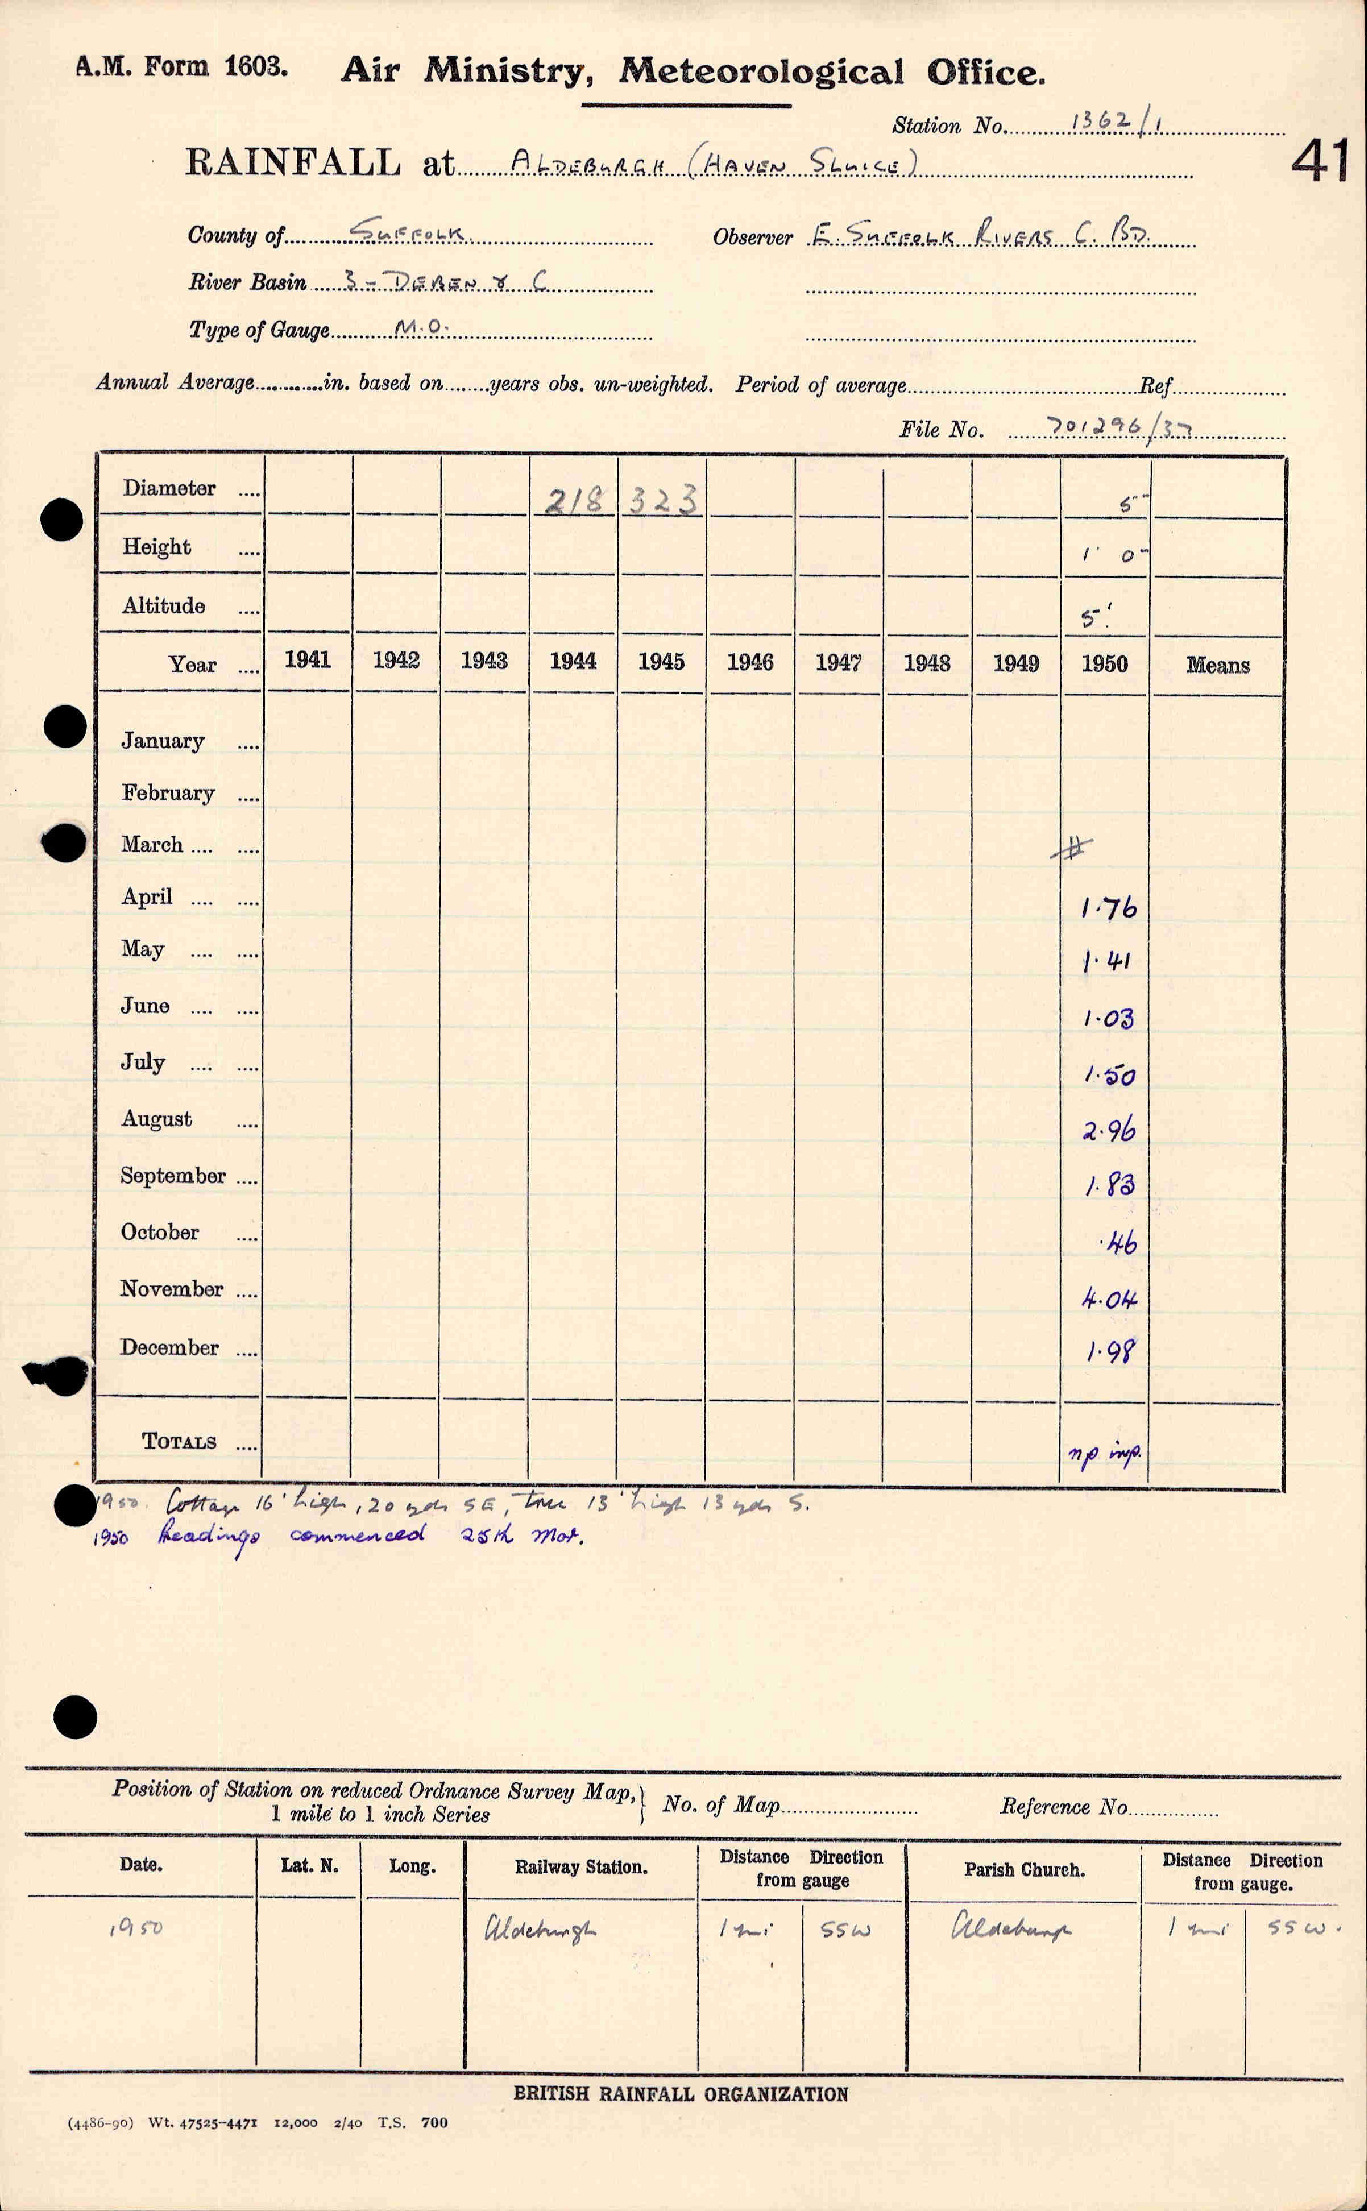 A.M. Form 1603. Air Ministry, Meteorological Office.
Station No. 1362/1
41
RAINFALL at ALDEBURGH (HAVEN SLUICE)
County of SUFFOLK Observer E. SUFFOLK RIVERS C. BD.
River Basin 3 - DEBEN & C
Type of Gauge M.O.
Annual Average in. based on years obs. un-weighted. Period of average Ref
File No. 701296/37
Diameter .... 218 323 5"
Height .... 1' 0"
Altitude .... 5'
Year .... 1941 1942 1943 1944 1945 1946 1947 1948 1949 1950 Means
January ....
February ....
March .... .... #
April .... .... 1.76
May .... .... 1.41
June .... .... 1.03
July .... .... 1.50
August .... 2.96
September .... 1.83
October .... .46
November .... 4.04
December .... 1.98
TOTALS .... np inp.
1950. Cottage 16' high, 20 yds SE, tree 13' high 13 yds S.
1950 Readings commenced 25th Mar.
Position of Station on reduced Ordnance Survey Map, } No. of Map Reference No.
1 mile to 1 inch Series
Date. Lat. N. Long. Railway Station. Distance Direction from gauge Parish Church. Distance Direction from gauge.
1950 Aldeburgh 1 mi SSW Aldeburgh 1 mi SSW.
BRITISH RAINFALL ORGANIZATION
(4486-90) Wt. 47525-4471 12,000 2/40 T.S. 700